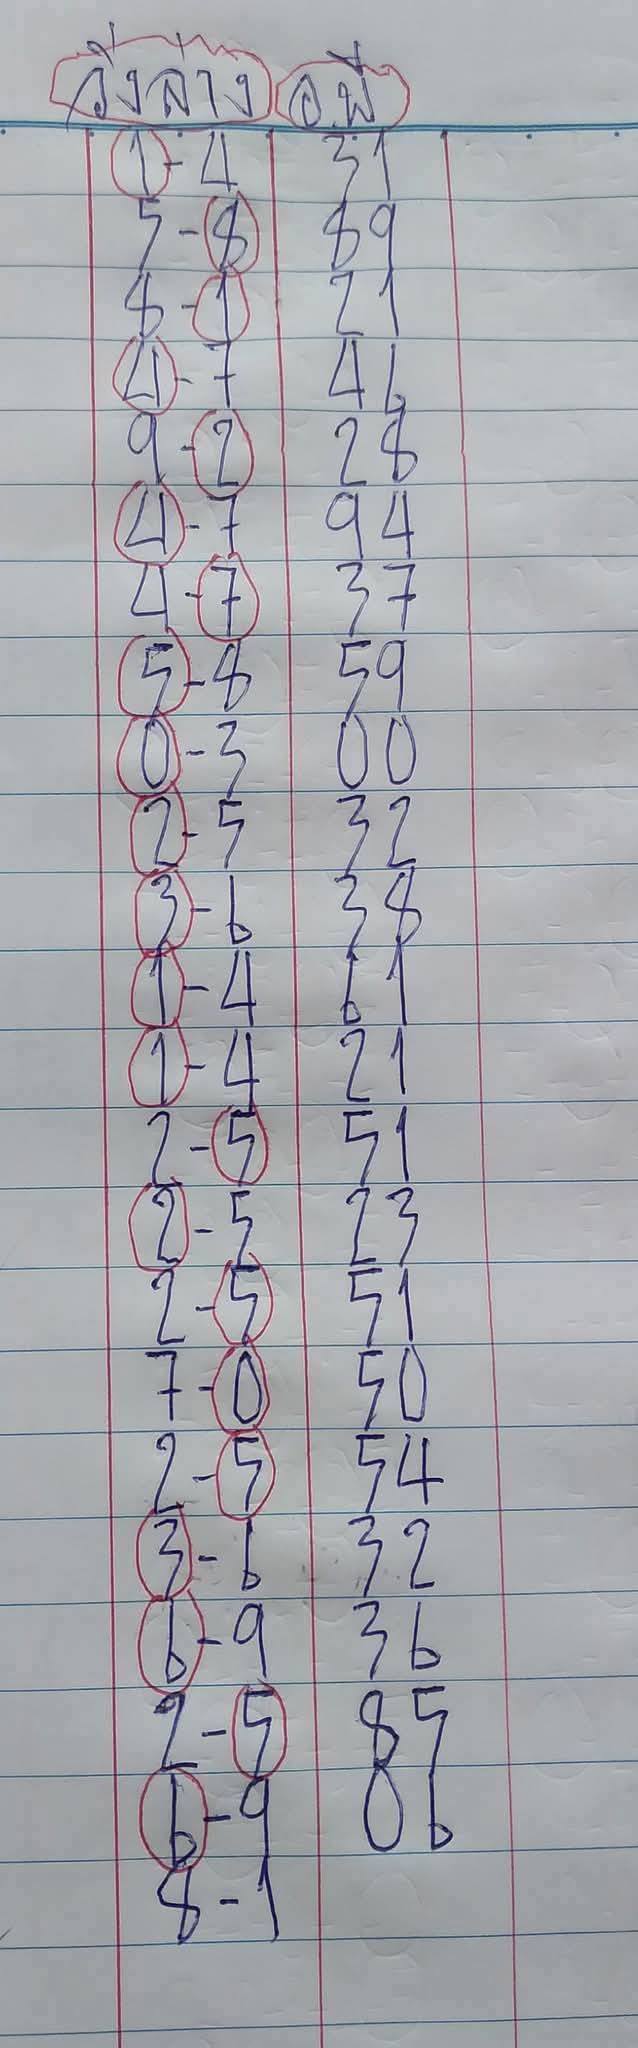 วิ่งล่าง อ.พี่
1-4 31
5-8 89
8-1 21
4-7 46
9-2 28
4-7 94
4-7 37
5-8 59
0-3 00
2-5 32
3-6 38
1-4 61
1-4 21
2-5 51
2-5 23
2-5 51
7-0 50
2-5 54
3-6 32
6-9 36
2-5 85
6-9 06
8-1